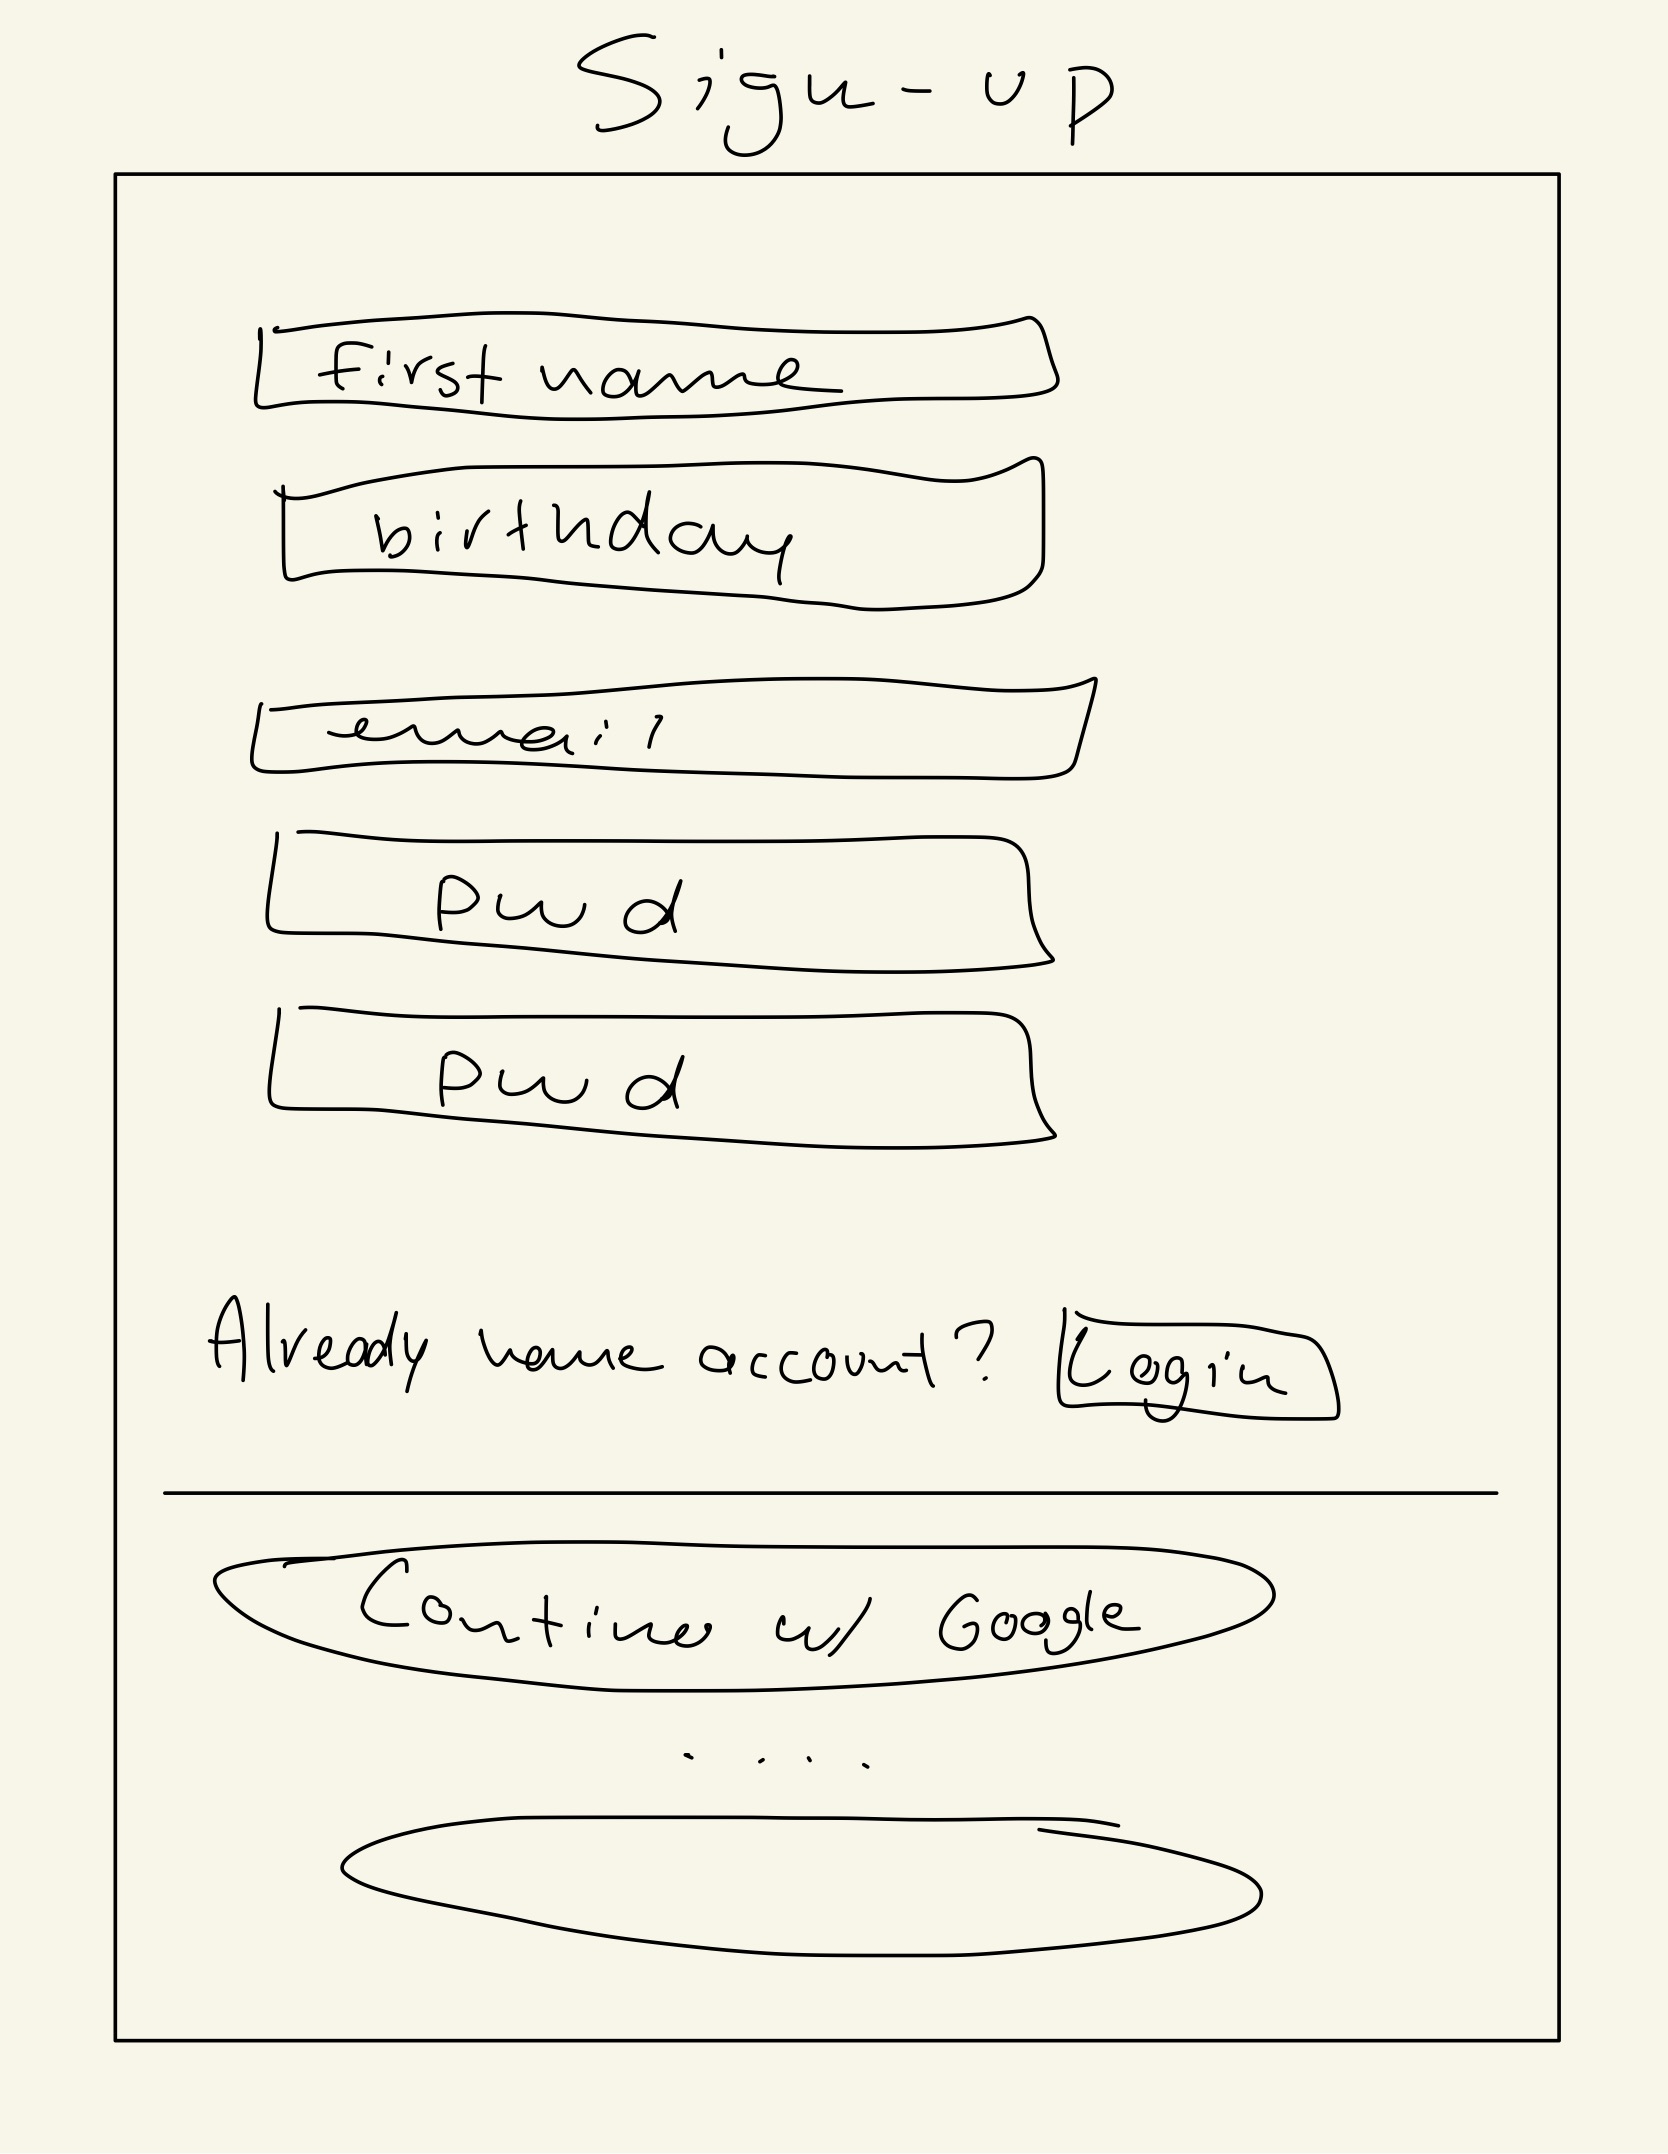 Sign-up
First name
birthday
email
pwd
pwd
Already have account? Login
Continue w/ Google
....